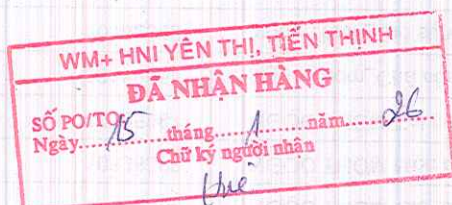 WM+ HNI YÊN THỊ, TIẾN THỊNH
ĐÃ NHẬN HÀNG
SỐ PO/TO
Ngày.....15.....tháng.....1.....năm.....26.....
Chữ ký người nhận
Huê